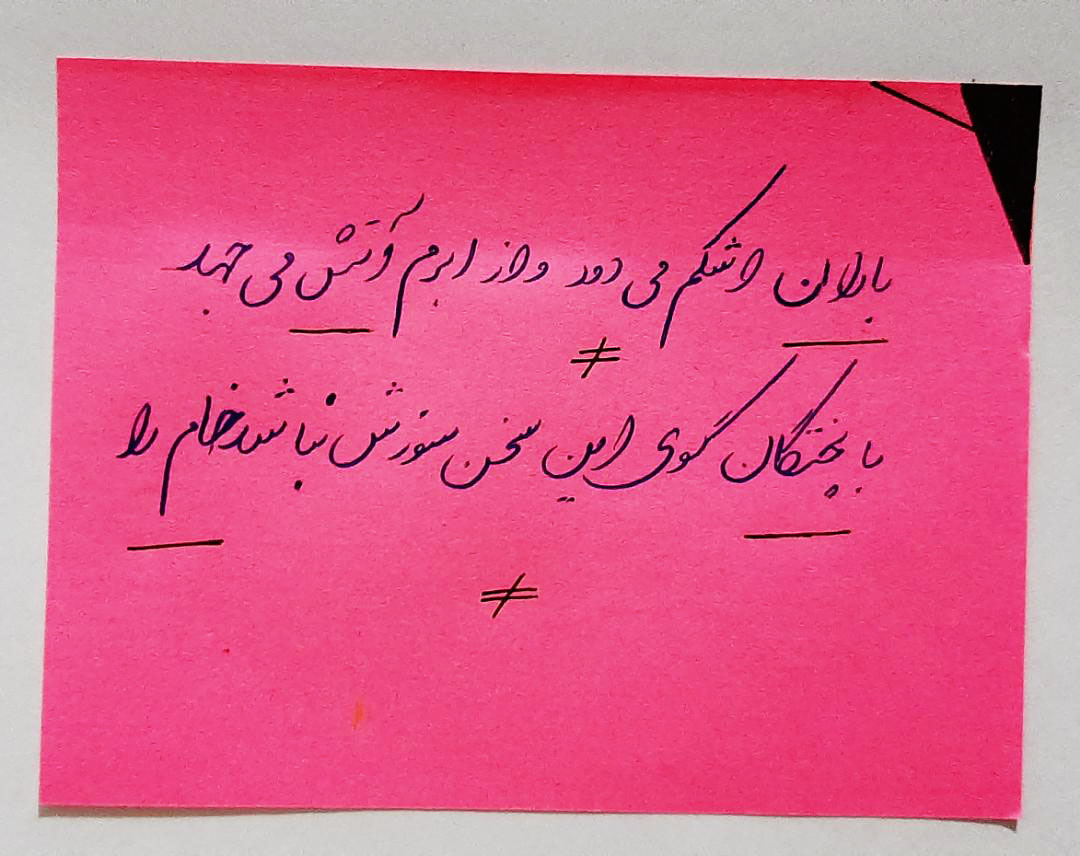 باران اشکم می دود و از ابرم آتش می جهد
≠
با پختگان گوی این سخن سوزش نباشد خام را
≠